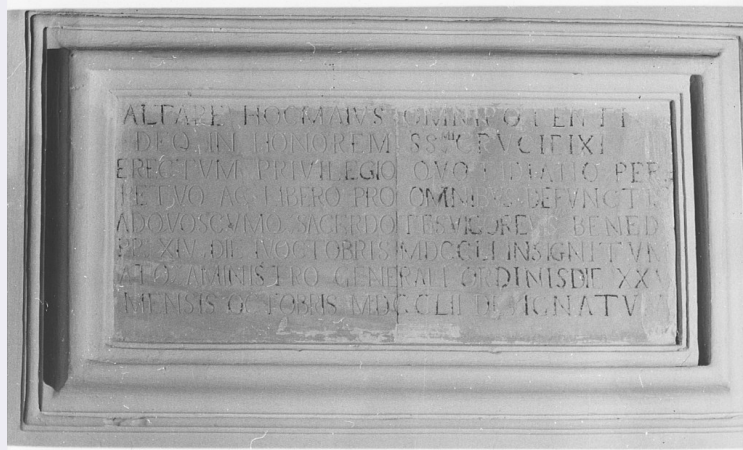 ALTARE HOC MAIVS OMNIPOTENTI
DEO IN HONOREM SSMI CRVCIFIXI
ERECTVM PRIVILEGIO QVOTIDIANO PER
PETVO AC LIBERO PRO OMNIBVS DEFVNCTIS
AD QVOSCVMQ SACERDOTES VIGORE BENED
PP XIV DIE IV OCTOBRIS MDCCLI INSIGNITVM
AMINISTRO GENERALI ORDINIS DIE XXV
MENSIS OCTOBRIS MDCCLII DESIGNATVM